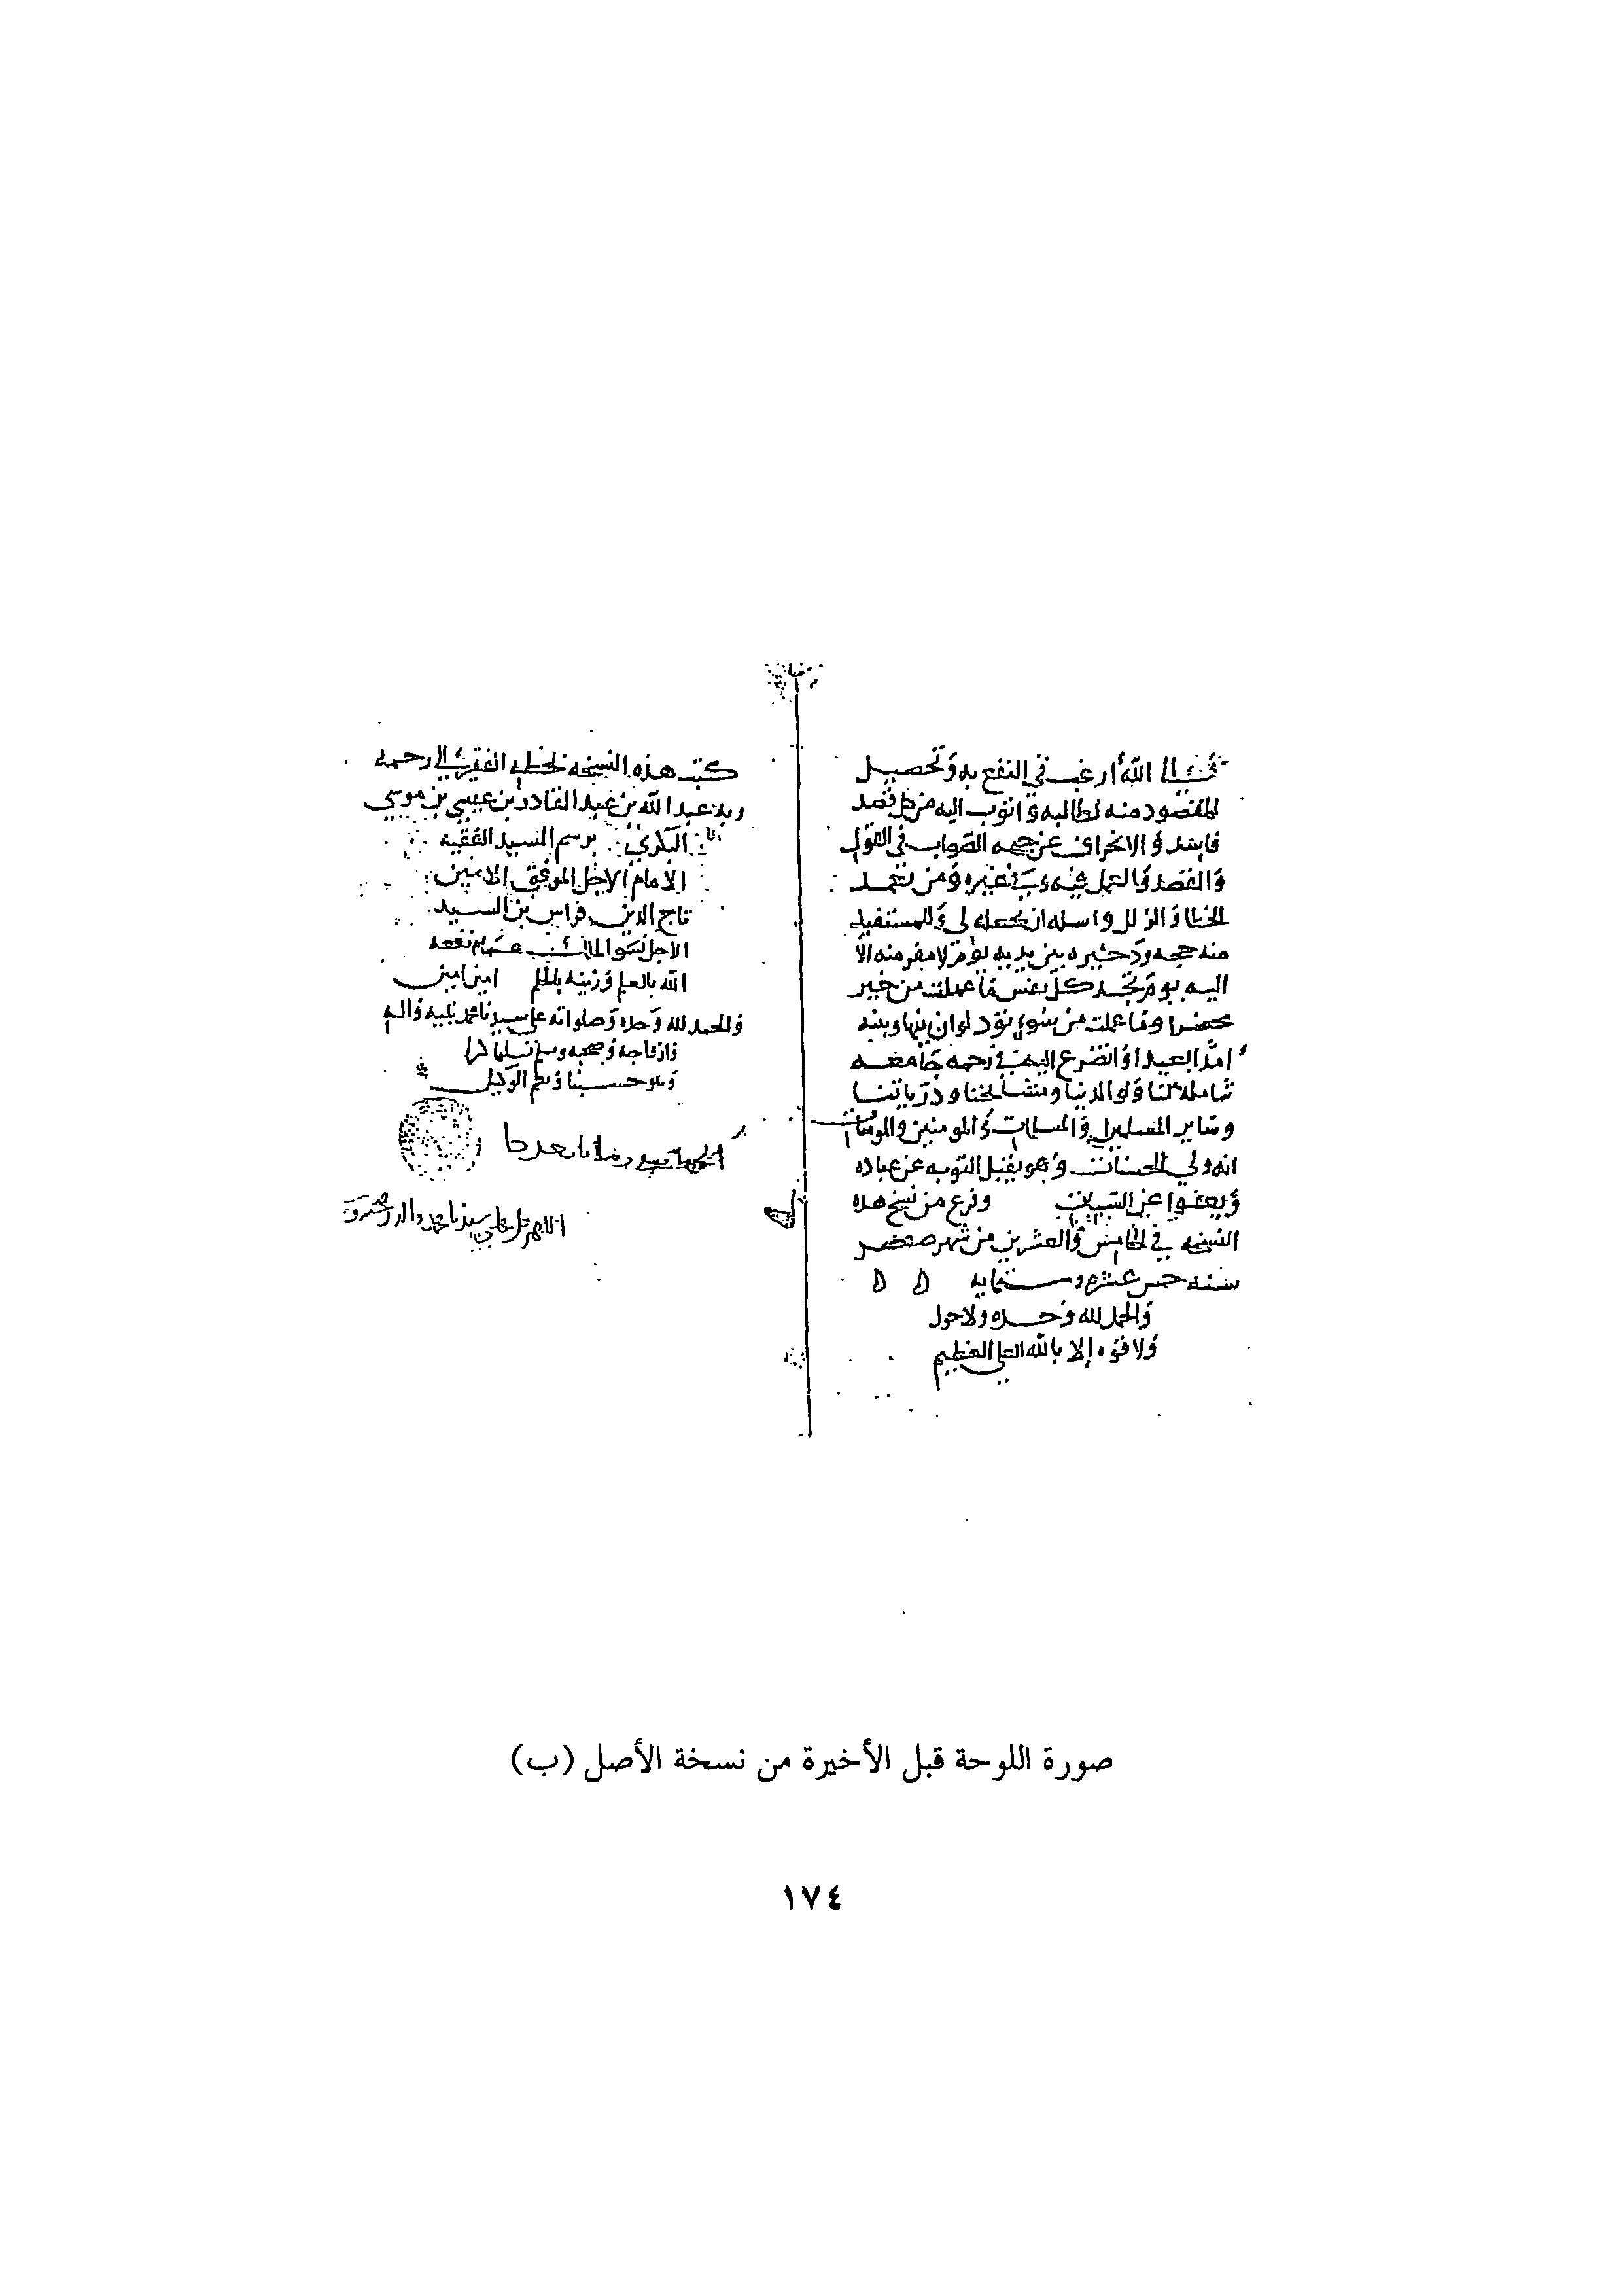 الله أرغب في النفع به وتحصيل
المقصود منه لطالبه واتوب اليه من كل قصد
فاسد والانحراف عن جهه الصواب في القول
والقصد والعمل فيه وفي غيره ومن تعمد
الخطا والزلل واسله ان يجعله لي وللمستفيد
منه حجه وذخيره بين يديه يوم لا مفر منه الا
اليه يوم تجد كل نفس ما عملت من خير
محضرا وما عملت من سوء تود لو ان بينها وبينه
امدا بعيدا واتضرع اليه في رحمه جامعه
شامله لنا ولوالدينا ومشايخنا وذرياتنا
وساير المسلمين والمسلمات والمومنين والمومنات
انه ولي الحسنات وهو يقبل التوبه عن عباده
ويعفوا عن السيات وفرغ من نسخ هذه
النسخه في الخامس والعشرين من شهر صفر
سنه خمس عشره وستمايه ه ه
والحمد لله وحده ولا حول
ولا قوه إلا بالله العلي العظيم
كتب هذه النسخه بخطه الفقير الى رحمه
ربه عبد الله بن عبد القادر بن عيسى بن موسى
البكري برسم السيد الفقيه
الامام الاجل الموفق الامين
تاج الدين فراس بن السيد
الاجل نفعه
الله بالعلم وزينه بالحلم امين امين
والحمد لله وحده وصلواته على سيدنا محمد نبيه واله
وازواجه وصحبه وسلم تسليما
وهو حسبنا ونعم الوكيل
اللهم صل على سيدنا محمد واله وصحبه
صورة اللوحة قبل الأخيرة من نسخة الأصل (ب)
١٧٤